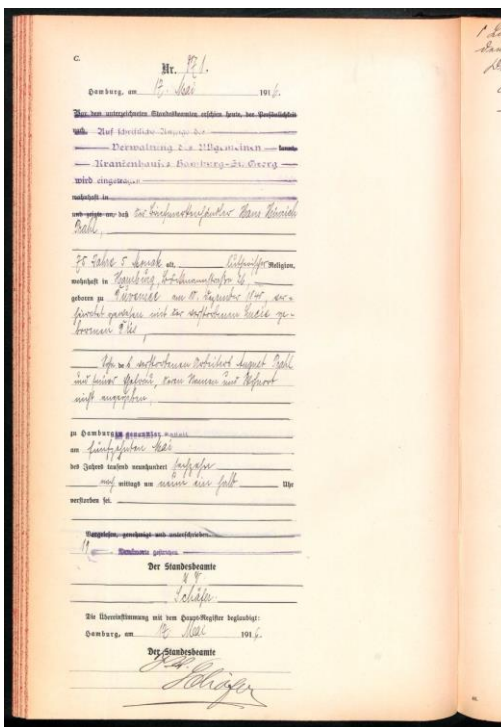 C.
Nr. 871.
Hamburg, am 17. Mai 1916.
Vor dem unterzeichneten Standesbeamten erschien heute, der Persönlichkeit
nach, Auf schriftliche Anzeige der
Verwaltung des Allgemeinen kannt,
Krankenhauses Hamburg-St. Georg
wird eingetragen
wohnhaft in
und zeigte an, daß der Briefmarkenhändler Hans Hinrich
Prahl,
75 Jahre 5 Monat alt, lutherischer Religion,
wohnhaft in Hamburg,
geboren zu am 10. Dezember, ver-
heiratet gewesen mit der verstorbenen Lucie ge-
borenen
Sohn des verstorbenen Arbeiters August Prahl
und seiner Ehefrau, deren Namen und Wohnort
nicht angegeben,
zu Hamburg in genannter Anstalt
am fünfzehnten Mai
des Jahres tausend neunhundert sechzehn
nachmittags um neun ein halb Uhr
verstorben sei.
Vorgelesen, genehmigt und unterschrieben.
19 Druckworte gestrichen.
Der Standesbeamte
Schäfer.
Die Übereinstimmung mit dem Haupt-Register beglaubigt:
Hamburg, am 17. Mai 1916.
Der Standesbeamte
Schäfer